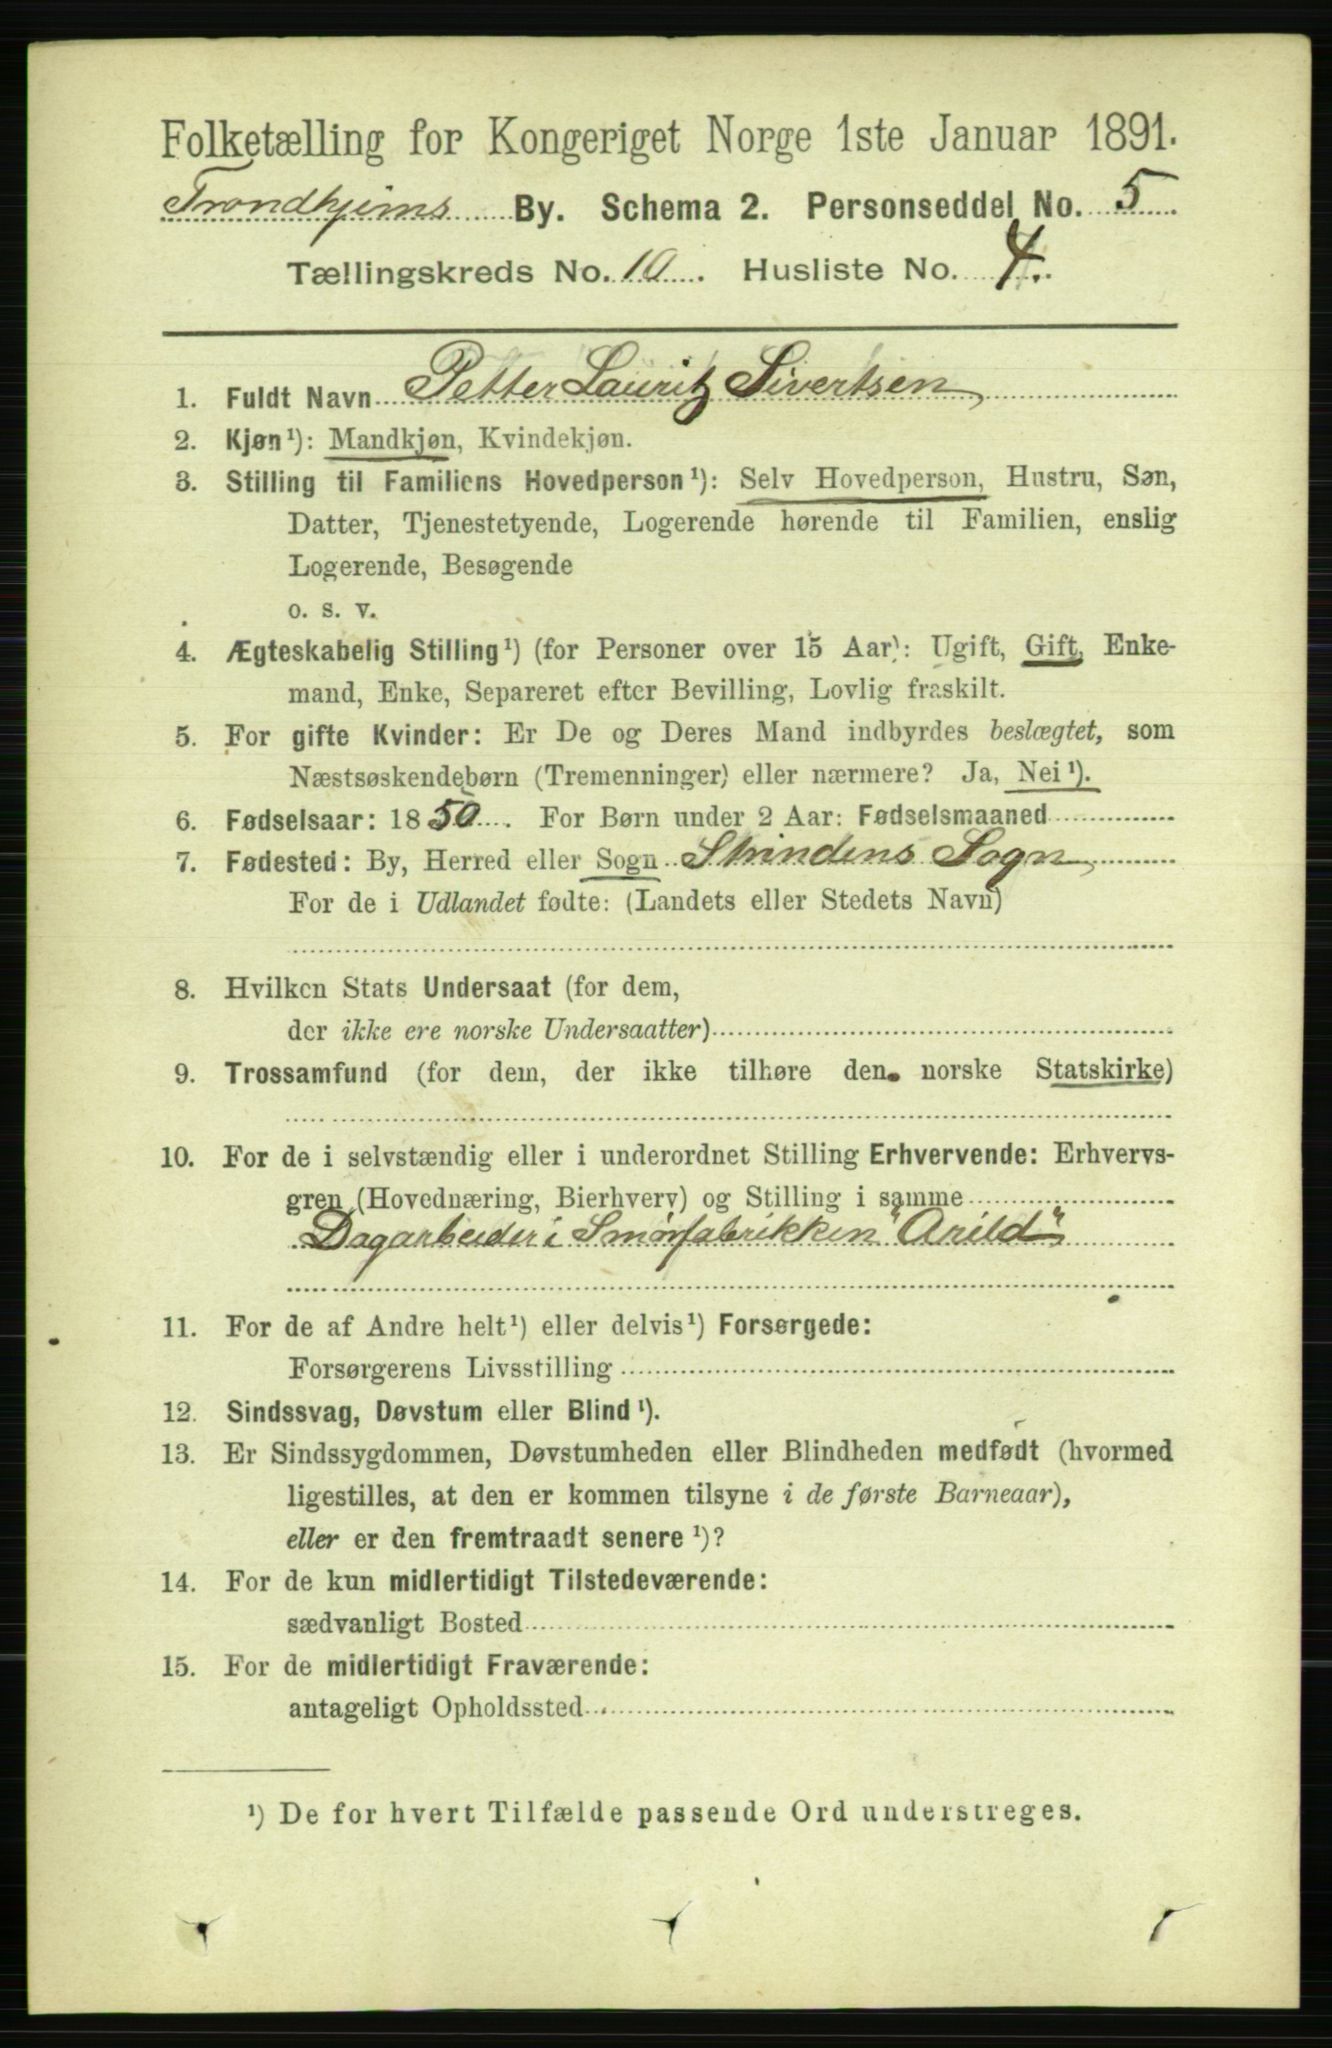 Folketælling for Kongeriget Norge 1ste Januar 1891.
Trondhjems By. Schema 2. Personseddel No. 5
Tællingskreds No. 10. Husliste No. 4.
1. Fuldt Navn Petter Lauritz Sivertsen
2. Kjøn¹): Mandkjøn, Kvindekjøn.
3. Stilling til Familiens Hovedperson¹): Selv Hovedperson, Hustru, Søn,
Datter, Tjenestetyende, Logerende hørende til Familien, enslig
Logerende, Besøgende
o. s. v.
4. Ægteskabelig Stilling¹) (for Personer over 15 Aar): Ugift, Gift, Enke-
mand, Enke, Separeret efter Bevilling, Lovlig fraskilt.
5. For gifte Kvinder: Er De og Deres Mand indbyrdes beslægtet, som
Næstsøskendebørn (Tremenninger) eller nærmere? Ja, Nei¹).
6. Fødselsaar: 1850. For Børn under 2 Aar: Fødselsmaaned
7. Fødested: By, Herred eller Sogn Strindens Sogn
For de i Udlandet fødte: (Landets eller Stedets Navn)
8. Hvilken Stats Undersaat (for dem,
der ikke ere norske Undersaatter)
9. Trossamfund (for dem, der ikke tilhøre den norske Statskirke)
10. For de i selvstændig eller i underordnet Stilling Erhvervende: Erhvervs-
gren (Hovednæring, Bierhverv) og Stilling i samme
Dagarbeider i Smørfabrikken "Arild"
11. For de af Andre helt¹) eller delvis¹) Forsørgede:
Forsørgerens Livsstilling
12. Sindssvag, Døvstum eller Blind¹).
13. Er Sindssygdommen, Døvstumheden eller Blindheden medfødt (hvormed
ligestilles, at den er kommen tilsyne i de første Barneaar),
eller er den fremtraadt senere¹)?
14. For de kun midlertidigt Tilstedeværende:
sædvanligt Bosted
15. For de midlertidigt Fraværende:
antageligt Opholdssted
¹) De for hvert Tilfælde passende Ord understreges.